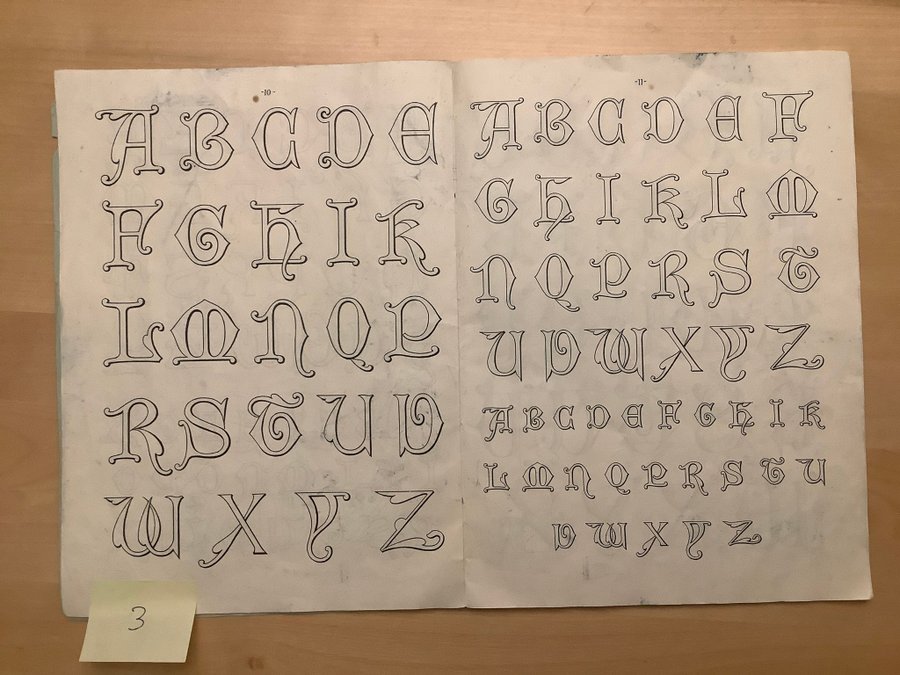 -10-
A B C D E
F G H I K
L M N Q P
R S T U V
W X Y Z
-11-
A B C D E F
G H I K L M
N Q P R S T
U V W X Y Z
A B C D E F G H I K
L M N Q P R S T U
V W X Y Z
3